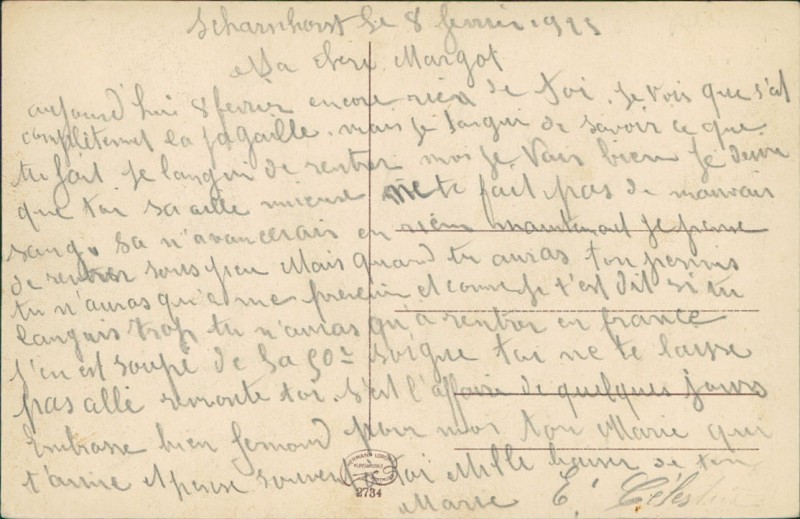 Scharnhorst le 8 fevrier 1923
Ma chere Margot
aujourd'hui 8 fevrier encore rien de toi. Je vois que s'est
completemet la pagaille. mais je langui de savoir ce que
tu fait je langui de rentrer moi je vais bien je desire
que toi sa aille mieux ne te fait pas de mauvais
sang. sa n'avancerais en rien maintenant je pense
de rentrer sous peu Mais quand tu auras ton permis
tu n'auras qu'a me prevenir et comme je t'est dit si tu
languis trop tu n'auras qu'a rentrer en france
j'en est soupé de la 50e soigne toi ne te laisse
pas allé remonte toi. s'est l'affaire de quelques jours
Embrasse bien fernand pour moi ton Marie qui
t'aime et pense souvent a toi Mille baiser de ton
Marie E. Celes
2734